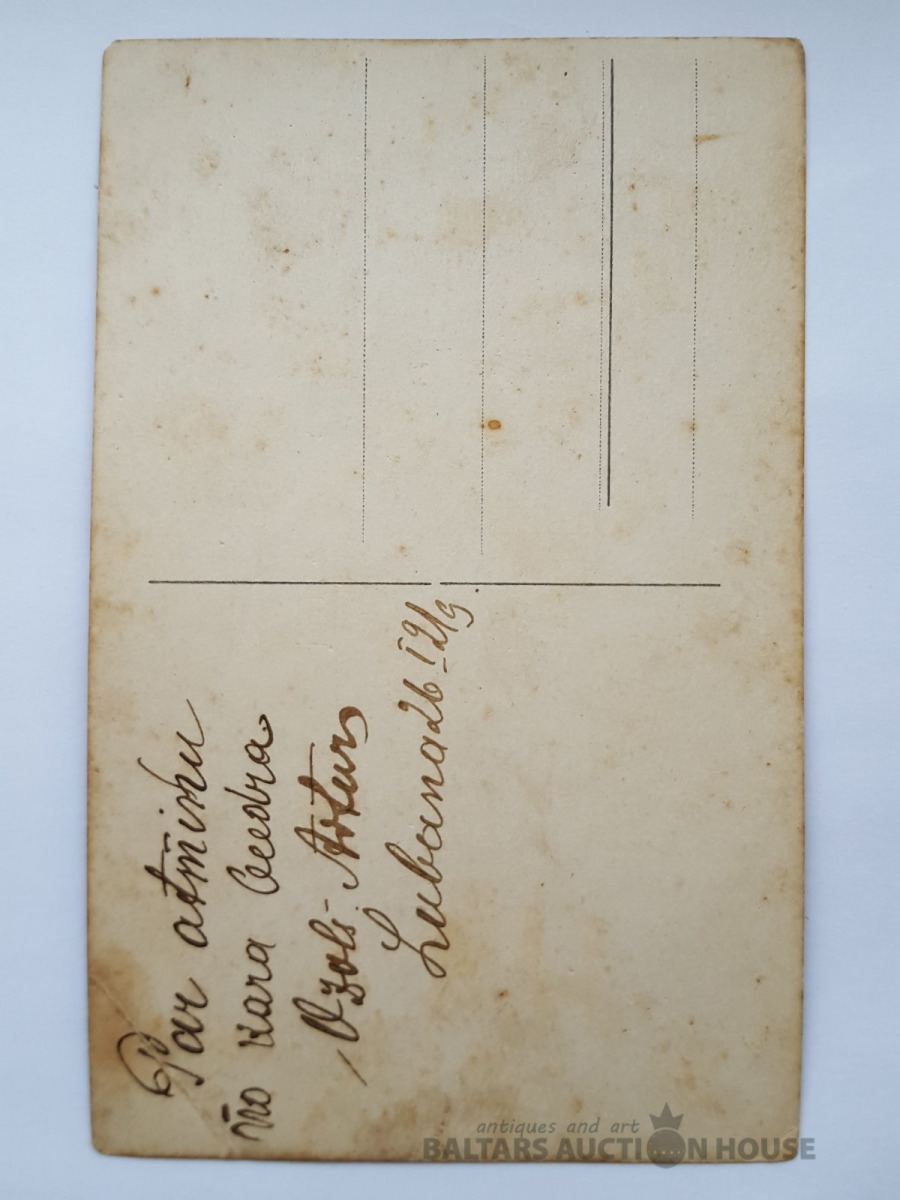 Par atmiņu
no kara beedra
Ozols-Arturs
Lubana
antiques and art
BALTARS AUCTION HOUSE